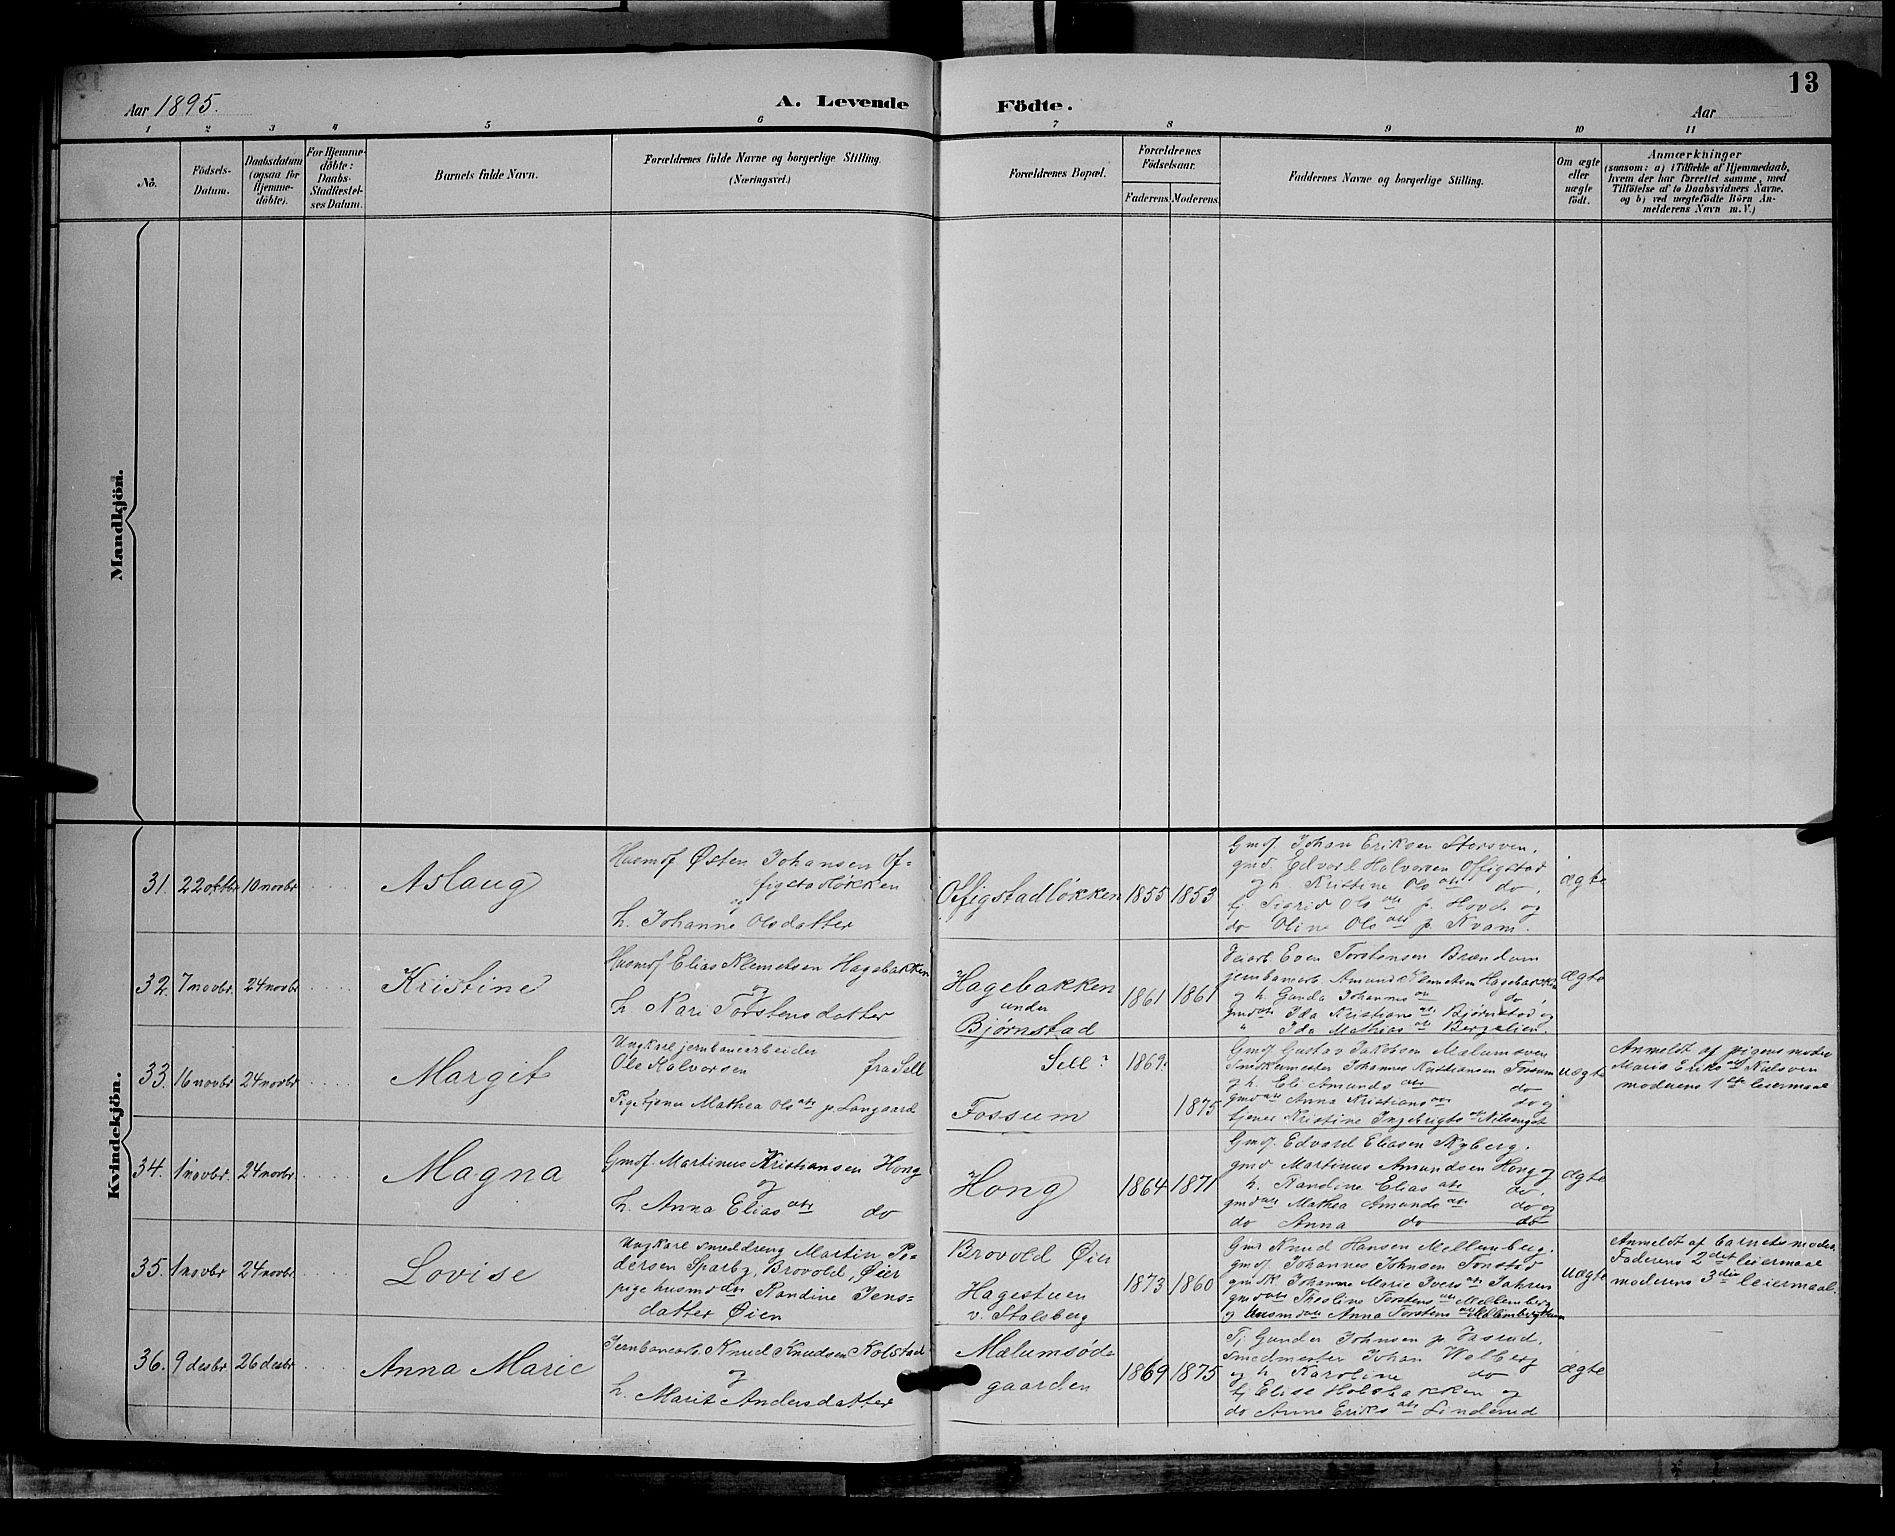 13
Aar 1895.
A. Levende Födte.
Aar
1 2 3 4 5 6 7 8 9 10 11
No.
Födsels-
Datum.
Daabsdatum
(ogsaa for
Hjemme-
döbte).
For Hjemme-
döbte:
Daabs-
Stadfæstel-
ses Datum.
Barnets fulde Navn.
Forældrenes fulde Navne og borgerlige Stilling.
(Næringsvei.)
Forældrenes Bopæl.
Forældrenes
Födselsaar.
Faderens. Moderens.
Faddernes Navne og borgerlige Stilling.
Om ægte
eller
uægte
födt.
Anmærkninger
(saasom: a) i Tilfælde af Hjemmedaab,
hvem der har forrettet samme, med
Tilföielse af to Daabsvidners Navne,
og b) ved uægtefödte Börn An-
melderens Navn m.V.)
Mandkjön.
Kvindekjön.
31. 22 oktbr 10 novbr
Aslaug
Husmf Østen Johansen Of-
figstadløkken
og
h. Johanne Olsdatter
Offigstadløkken
1855 1853
Gmf. Johan Eriksen Stersven.
gmd Edvard Halvorsen Offigstad
og h. Kristine Ols dtr do.
tj Sigrid Ols dtr p. Hovde og
do Oline Ols dtr p. Kvam.
ægte
32. 7 novbr. 24 novbr
Kristine
Husmf Elias Klemetsen Hagebakken
og
h Kari Torstensdatter
Hagebakken
under
Bjørnstad
1861 1861
Veiarb. Even Torstensen Brændum
jernbanearb. Amund Klemetsen Hagebakken
og h. Gunda Johannes dtr do,
gmd dtr Ida Kristians dtr Bjørnstad og
" Ida Mathias dtr Bergelien.
ægte
33. 16 novbr 24 novbr
Margit
Ungkarl jernbanearbeider
Ole Halvorsen fra Sell
Pige tjener Mathea Ols dtr p. Langaard
Sell? 1869?
Fossum 1875
Gmf. Gustav Jakobsen Mælumsven
Snedkermester Johannes Kristiansen Fossum
og h. Eli Amunds dtr do
gmd dtr Anna Kristians dtr do og
tjener Kristine Ingebrigts dtr Nilsenget
uægte
Anmeldt af pigens moder
Maria Eriks dtr Nilsven
moderens 1ste leiermaal
34. 1 novbr. 24 novbr
Magna
Gmdf. Martinus Kristiansen Hong
og
h. Anna Elias dtr do
Hong
1864 1871
Gmf. Edvard Eliasen Nyberg.
gmd Martinus Amundsen Hong og
h. Randine Elias dtr do.
gmd dtr Mathea Amunds dtr do og
do Anna do do
ægte
35. 1 novbr 24 novbr
Lovise
Ungkarl smeddreng Martin Pe-
dersen Sparby, Brovold, Øier
pige husmdtr Randine Jens-
datter Øien
Brovold Øier
Hagestuen
v. Stalsberg
1873 1860
Gmf Knud Hansen Mellemberg.
gmf. Johannes Johnsen Tonstad
gmdk Johanne Marie Ivers dtr Jahren
gmd dtr Theoline Torstens dtr Mellemberg
og husmdtr Anna Torstens dtr
uægte
Anmeldt af barnets moder.
Faderens 2det leiermaal
moderens 3die leiermaal.
36. 9 desbr 26 desbr.
Anna Marie
Jernbanearb Knud Knudsen Kolstad
og
h. Marit Andersdatter
Mælumsøde-
gaarden
1869 1875
Tj. Gunder Johnsen p.
smedmester Johan Welberg
og h Karoline do
tj Elise Holsbakken og
do Anne Eriks dtr Linderud
ægte